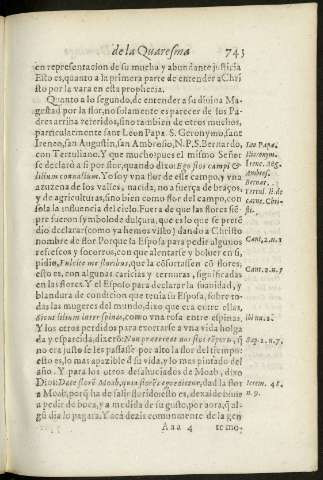 de la Quaresma 743
en representacion de su mucha y abundante justicia
Esto es, quanto a la primera parte de entender a Chri
sto por la vara en esta prophecia.
Quanto a lo segundo, de entender a su divina Ma-
gestad por la flor, no solamente es parecer de los Pa-
dres arriba referidos, sino tambien de otros muchos,
particularmente sant Leon Papa. S. Geronymo, sant
Ireneo, san Augustin, san Ambrosio, N.P.S. Bernardo,
con Tertuliano. Y que mucho pues el mismo Señor
se declarò a si por flor, quando dixo: Ego flos campi &
lilium convalium. Yo soy vna flor de esse campo, y vna
azuzena de los valles, nacida, no a fuerça de braços,
y de agriculturas, sino bien como flor del campo, con
sola la influencia del cielo. Fuera de que las flores siē-
pre fueron symbolo de dulçura, que es lo que se pretē
dio declarar (como ya hemos visto) dando a Christo
nombre de flor Porque la Esposa para pedir algunos
refrescos y socorros, con que alentarse y boluer en si,
pidio, Fulcite me floribus, que la cōfortassē cō flores,
esto es, con algunas caricias y ternuras, significadas
en las flores. Y el Esposo para declarar la suauidad, y
blandura de condicion que tenia su Esposa, sobre to-
das las mugeres del mundo, dixo que era entre ellas,
sicut lilium inter spinas, como vna rosa entre espinas,
Y los otros perdidos para exortarse a vna vida holga
da y esparcida, dixerō: Nun praetereat nos flos tēporis, q̃
no era justo se les passasse por alto la flor del tiempo:
esto es, lo mas apazible de su vida, y lo mas pintado del
año. Y para los otros desahuciados de Moab, dixo
Dios: Date florē Moab, quia florēs egredietur, dad la flor
a Moab, porq̃ ha de salir florido: esto es, dexalde biuir
a pedir de boca, y a medida de su gusto, por aora, q̃ al-
gū dia lo pagara. Y acà dezis comunmente de la gen
Aaa 4 te mo-
Leo Papa.
Hieronym.
Irene. Aug.
Ambros.
Bernar.
Tertul. li. de
carne Chri-
sti.
Cant, 2. n. 1
Cant. 2. n. 5
Sap. 2. n. 7.
Ierem. 48.
n. 9.